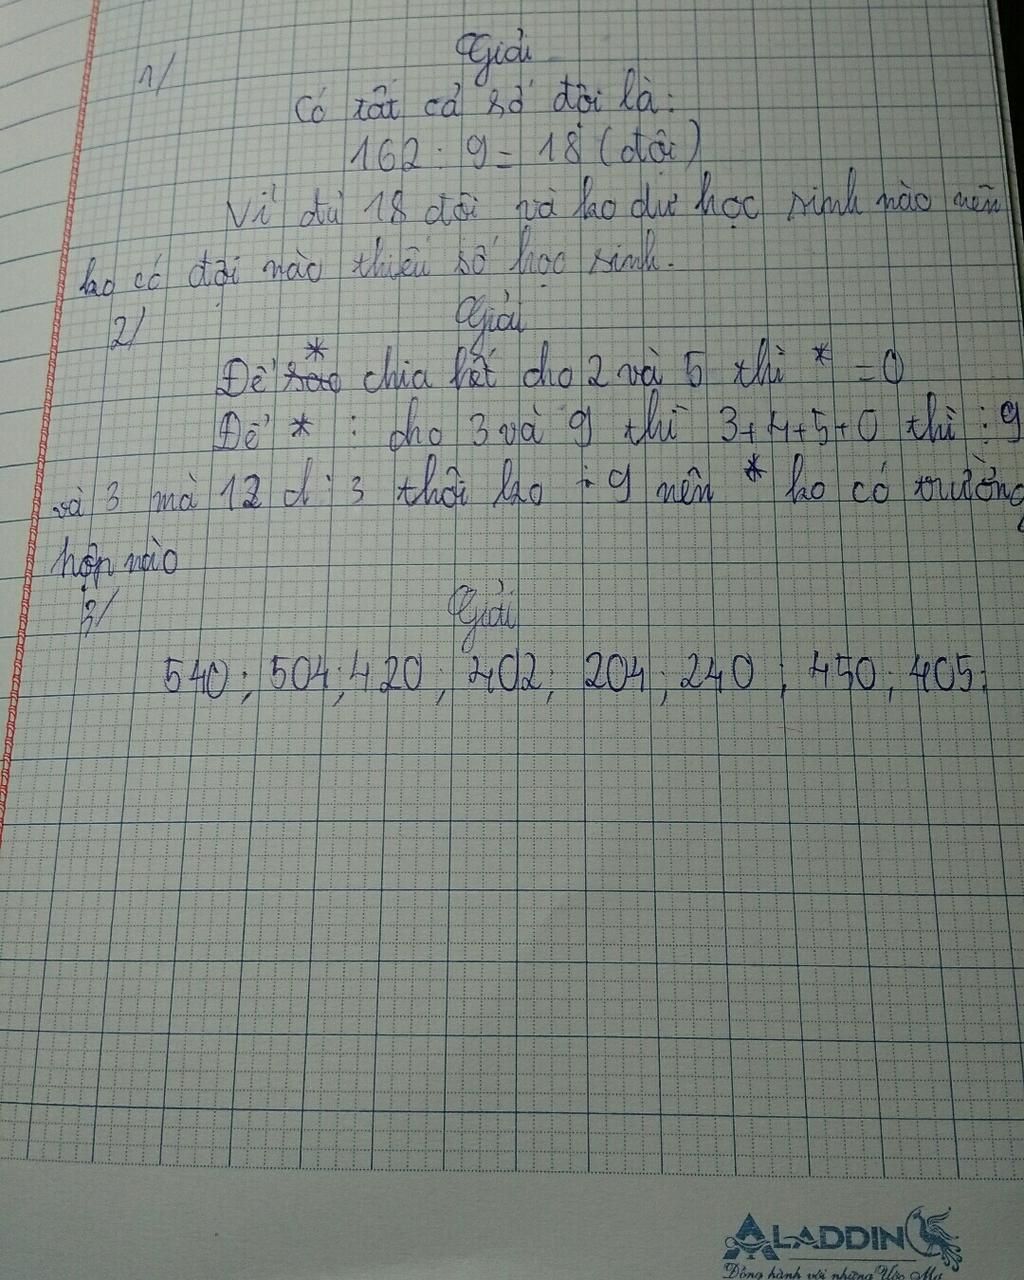 1/ Giải
Có tất cả số đội là:
162 : 9 = 18 (đội)
Vì đủ 18 đội và ko dư học sinh nào nên
ko có đội nào thiếu số học sinh.
2/ Giải
Để * chia hết cho 2 và 5 thì * = 0
Để * : cho 3 và 9 thì 3+4+5+0 thì : 9
và 3 mà 12 : 3 thôi ko : 9 nên * ko có trường
hợp nào
3/ Giải
540; 504; 420; 402; 204; 240; 450; 405;
ALADDIN
Đồng hành với những Ước Mơ